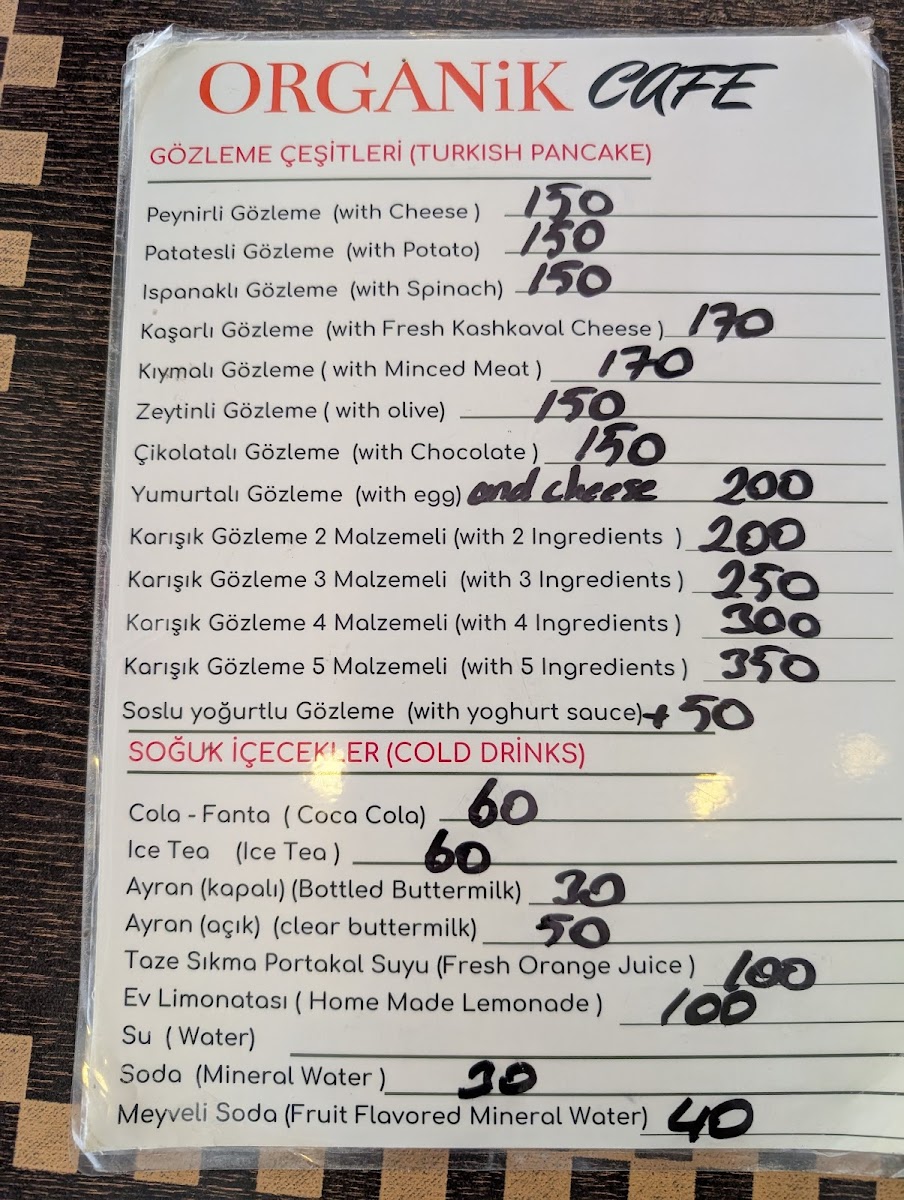 ORGANiK CAFE
GÖZLEME ÇEŞİTLERİ (TURKISH PANCAKE)
Peynirli Gözleme (with Cheese ) 150
Patatesli Gözleme (with Potato) 150
Ispanaklı Gözleme (with Spinach) 150
Kaşarlı Gözleme (with Fresh Kashkaval Cheese ) 170
Kıymalı Gözleme ( with Minced Meat ) 170
Zeytinli Gözleme ( with olive) 150
Çikolatalı Gözleme (with Chocolate ) 150
Yumurtalı Gözleme (with egg) and cheese 200
Karışık Gözleme 2 Malzemeli (with 2 Ingredients ) 200
Karışık Gözleme 3 Malzemeli (with 3 Ingredients ) 250
Karışık Gözleme 4 Malzemeli (with 4 Ingredients ) 300
Karışık Gözleme 5 Malzemeli (with 5 Ingredients ) 350
Soslu yoğurtlu Gözleme (with yoghurt sauce) + 50
SOĞUK İÇECEKLER (COLD DRİNKS)
Cola - Fanta ( Coca Cola) 60
Ice Tea (Ice Tea ) 60
Ayran (kapalı) (Bottled Buttermilk) 30
Ayran (açık) (clear buttermilk) 50
Taze Sıkma Portakal Suyu (Fresh Orange Juice ) 100
Ev Limonatası ( Home Made Lemonade ) 100
Su ( Water)
Soda (Mineral Water ) 30
Meyveli Soda (Fruit Flavored Mineral Water) 40